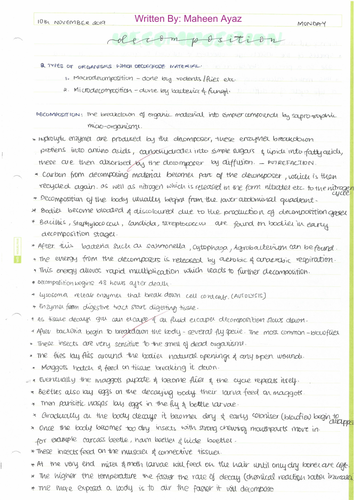 10th NOVEMBER 2019
Written By: Maheen Ayaz
MONDAY
decomposition
TYPES OF ORGANISMS WHICH DECOMPOSE MATERIAL:
1. Macrodecomposition - done by rodents/flies etc
2. Microdecomposition - done by bacteria & fungi.
DECOMPOSITION: The breakdown of organic material into simpler compounds by saprotrophic
micro-organisms.
enzymes are produced by the decomposer, these enzymes breakdown
proteins into amino acids, carbohydrates into simple sugars & lipids into fatty acids,
these are then absorbed by the decomposer by diffusion - PUTREFACTION.
Carbon from decomposing material becomes part of the decomposer, which is then
recycled again. as well as nitrogen which is released in the form nitrates etc. to the nitrogen
cycle
Decomposition of the body usually begins from the lower abdominal quadrant.
Bodies become bloated & discoloured due to the production of decomposition gases
Bacillus, Staphylococcus, candida, streptococcus are found on bodies in early
decomposition stages
After this bacteria such as salmonella, cytophaga, Agrobacterium can be found.
The energy from the decomposers is released by aerobic & anaerobic respiration.
This energy allows rapid multiplication which leads to further decomposition.
Decomposition begins 48 hours after death
Lysosomes release enzymes that break down cell contents (AUTOLYSIS)
Enzymes from digestive tract start digesting tissue.
As tissue decays gas can escape & as fluid escapes decomposition slows down.
After bacteria begin to breakdown the body - several fly species. The most common - blowflies
These insects are very sensitive to the smell of dead organisms.
The flies lay files around the bodies natural openings & any open wounds.
Maggots hatch & feed on tissue breaking it down.
Eventually the maggots pupate & become flies & the cycle repeats itself.
Beetles also lay eggs on the decaying body their larva feed on maggots.
Then parasitic wasps lay eggs in the fly & beetle larvae.
Gradually as the body decays it becomes dry & early coloniser (blowflies) begin to
disappear
Once the body becomes too dry insects with strong chewing mouthparts move in
for example carcass beetle, ham beetle & hide beetle.
These insects feed on the muscles & connective tissues.
At the very end mites & moth larvae will feed on the hair until only dry bones are left.
The higher the temperature the faster the rate of decay (chemical reaction rates increase)
The more exposed a body is to air the faster it will decompose